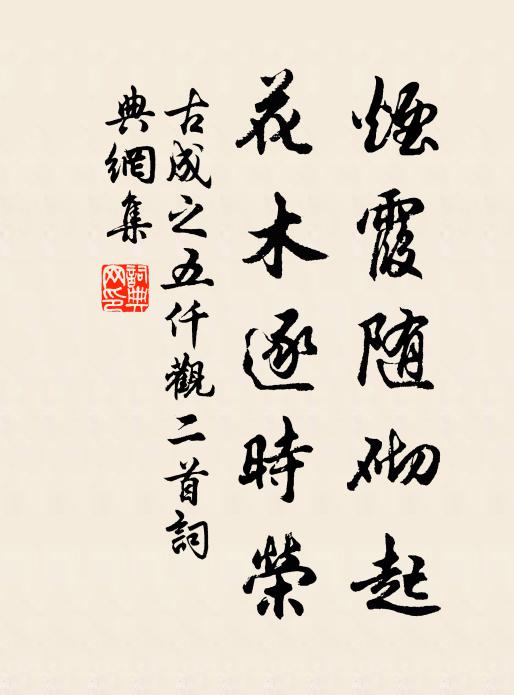 煙霞随砌起
花木逐時榮
古成之五仟觀二首詞
典網集
詞典
网印